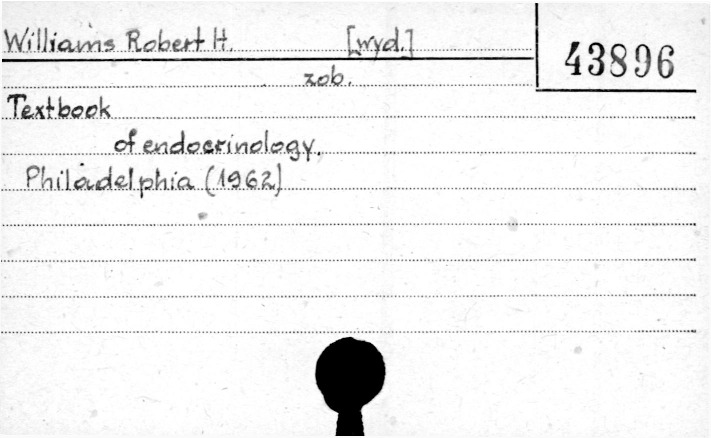 Williams Robert H. [wyd.]
43896
zob.
Textbook
of endocrinology.
Philadelphia (1962)